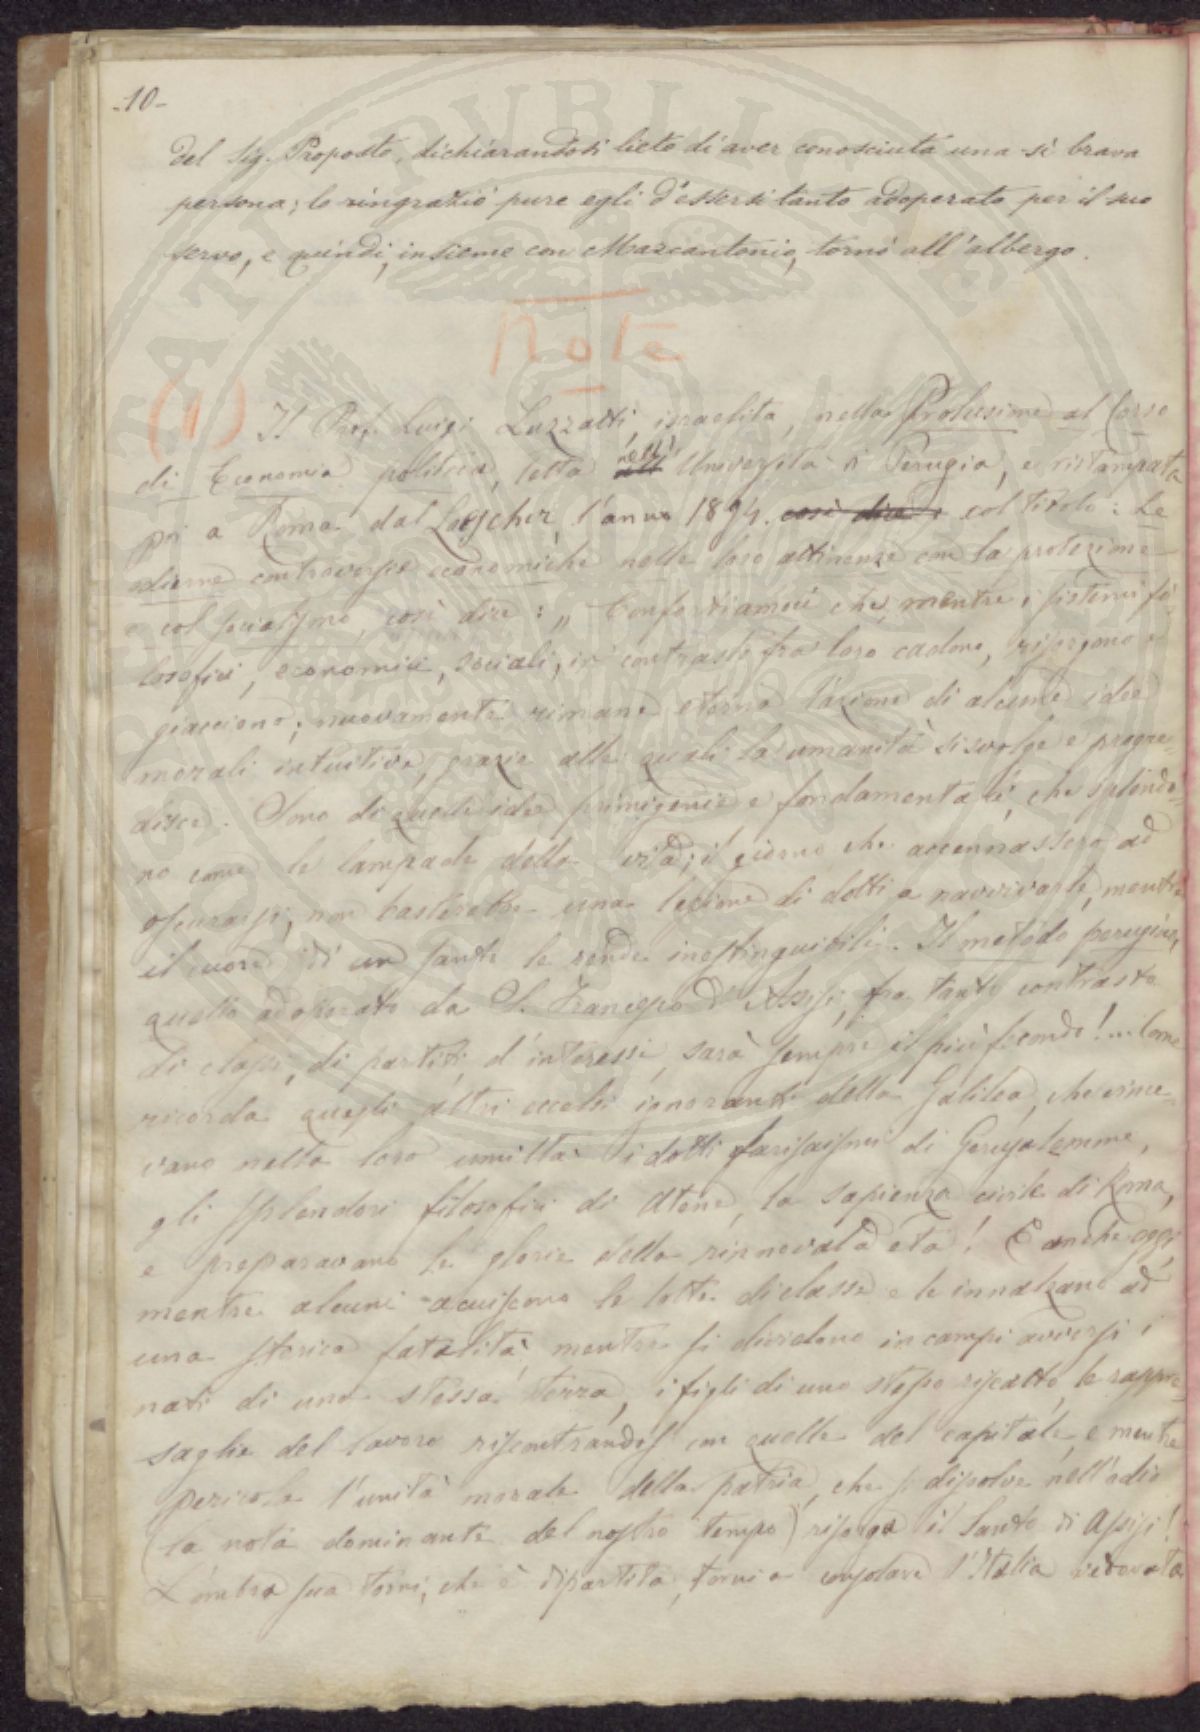 -10-
del Sig. Proposto, dichiarandosi lieto di aver conosciuta una sì brava
persona; lo ringraziò pure egli d'essersi tanto adoperato per il suo
servo, e quindi, insieme con Marcantonio, tornò all'albergo.
Note
(1) Il Prof. Luigi Luzzatti, israelita, nella Prolusione al Corso
di Economia politica, letta nell' Università di Perugia, e ristampata
poi a Roma dal Loescher, l'anno 1894. così dice: col titolo: Le
odierne controversie economiche nelle loro attinenze con la protezione
e col socialismo, così dice: „ Confortiamoci che, mentre i sistemi fi-
losofici, economici, sociali, in contrasto fra loro cadono, risorgono e
giacciono; nuovamente rimane eterna l'azione di alcune idee
morali intuitive, grazie alle quali la umanità si svolge e progre-
disce. Sono di quelle idee primigenie e fondamentali, che splendo-
no come le lampade della vita; il giorno che accennassero ad
oscurarsi, non basterebbe una legione di dotti a ravvivarle, mentre
il cuore di un santo le rende inestinguibili. Il metodo perugino,
quello adoperato da S. Francesco d'Assisi, fra tanto contrasto
di classi, di partiti, d'interessi, sarà sempre il più fecondo!... Come
ricorda quegli altri eccelsi ignoranti della Galilea, che vince-
vano nella loro umiltà i dotti farisaismi di Gerusalemme,
gli splendori filosofici di Atene, la sapienza civile di Roma,
e preparavano le glorie della rinnovata età! E anche oggi
mentre alcuni acuiscono le lotte di classe e le innalzano ad
una storica fatalità, mentre si dividono in campi avversi i
nati di una stessa terra, i figli di uno stesso riscatto, le rappre-
saglie del lavoro riscontrandosi con quelle del capitale, e mentre
pericola l'unità morale della patria, che si dissolve nell'odio
(la nota dominante del nostro tempo) risorga il Santo di Assisi!
L'ombra sua torni, che è dipartita, torni a consolare l'Italia vedovata